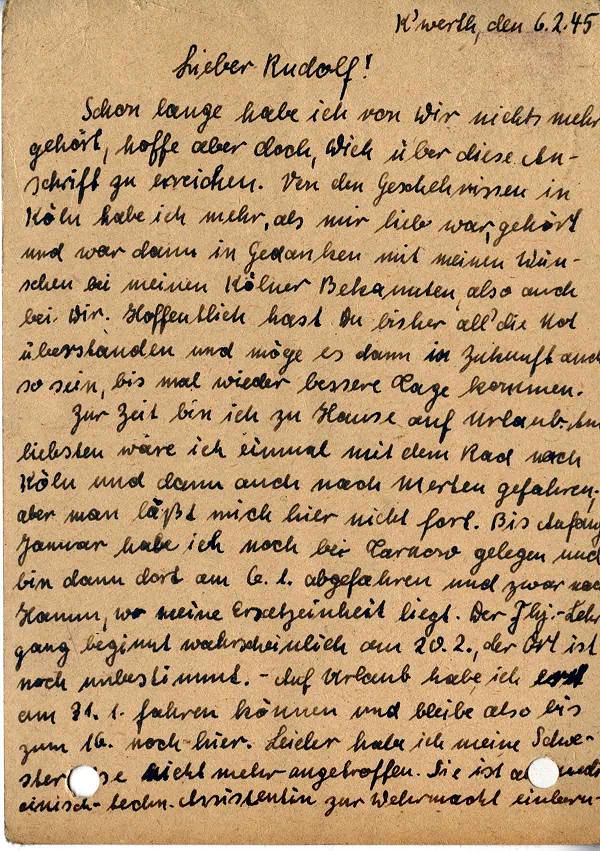 K'werth, den 6.2.45
Lieber Rudolf!
Schon lange habe ich von Dir nichts mehr
gehört, hoffe aber doch, Dich über diese An-
schrift zu erreichen. Von den Geschehnissen in
Köln habe ich mehr, als mir lieb war, gehört
und war dann in Gedanken mit meinen Wün-
schen bei meinen Kölner Bekannten, also auch
bei Dir. Hoffentlich hast Du bisher all' die Not
überstanden und möge es dann in Zukunft auch
so sein, bis mal wieder bessere Tage kommen.
Zur Zeit bin ich zu Hause auf Urlaub. Am
liebsten wäre ich einmal mit dem Rad nach
Köln und dann auch nach Merten gefahren,
aber man läßt mich hier nicht fort. Bis Anfang
Januar habe ich noch bei Tarnow gelegen und
bin dann dort am 6.1. abgefahren und zwar nach
Hamm, wo meine Ersatzeinheit liegt. Der Fhj.-Lehr
gang beginnt wahrscheinlich am 20.2., der Ort ist
noch unbestimmt. - Auf Urlaub habe ich erst
am 31.1. fahren können und bleibe also bis
zum 16. noch hier. Leider habe ich meine Schwe-
ster nicht mehr angetroffen. Sie ist
einisch-techn. Assistentin zur Wehrmacht einberu-